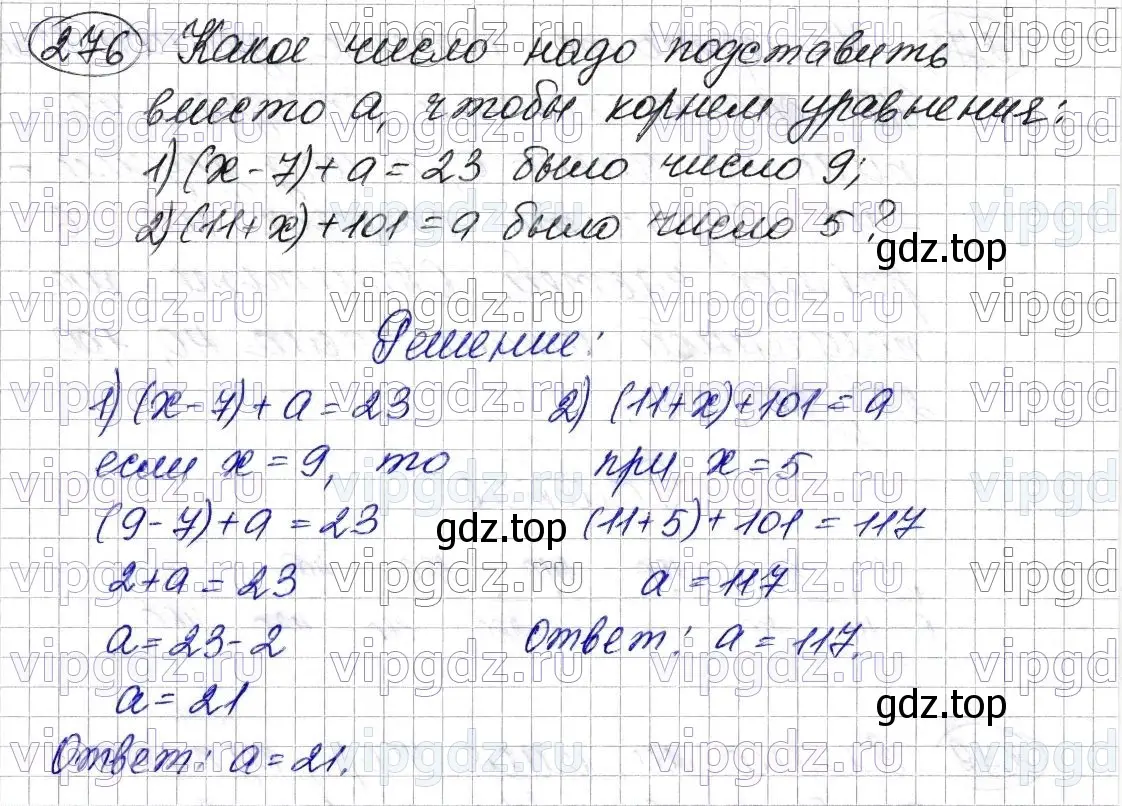 276 Какое число надо подставить
вместо a, чтобы корнем уравнения:
1) (x - 7) + a = 23 было число 9;
2) (11 + x) + 101 = a было число 5?
gdz.top
Решение:
1) (x - 7) + a = 23
если x = 9, то
(9 - 7) + a = 23
2 + a = 23
a = 23 - 2
a = 21
Ответ: a = 21.
2) (11 + x) + 101 = a
при x = 5
(11 + 5) + 101 = 117
a = 117
Ответ: a = 117.
gdz.top
gdz.top
vipgdz.ru